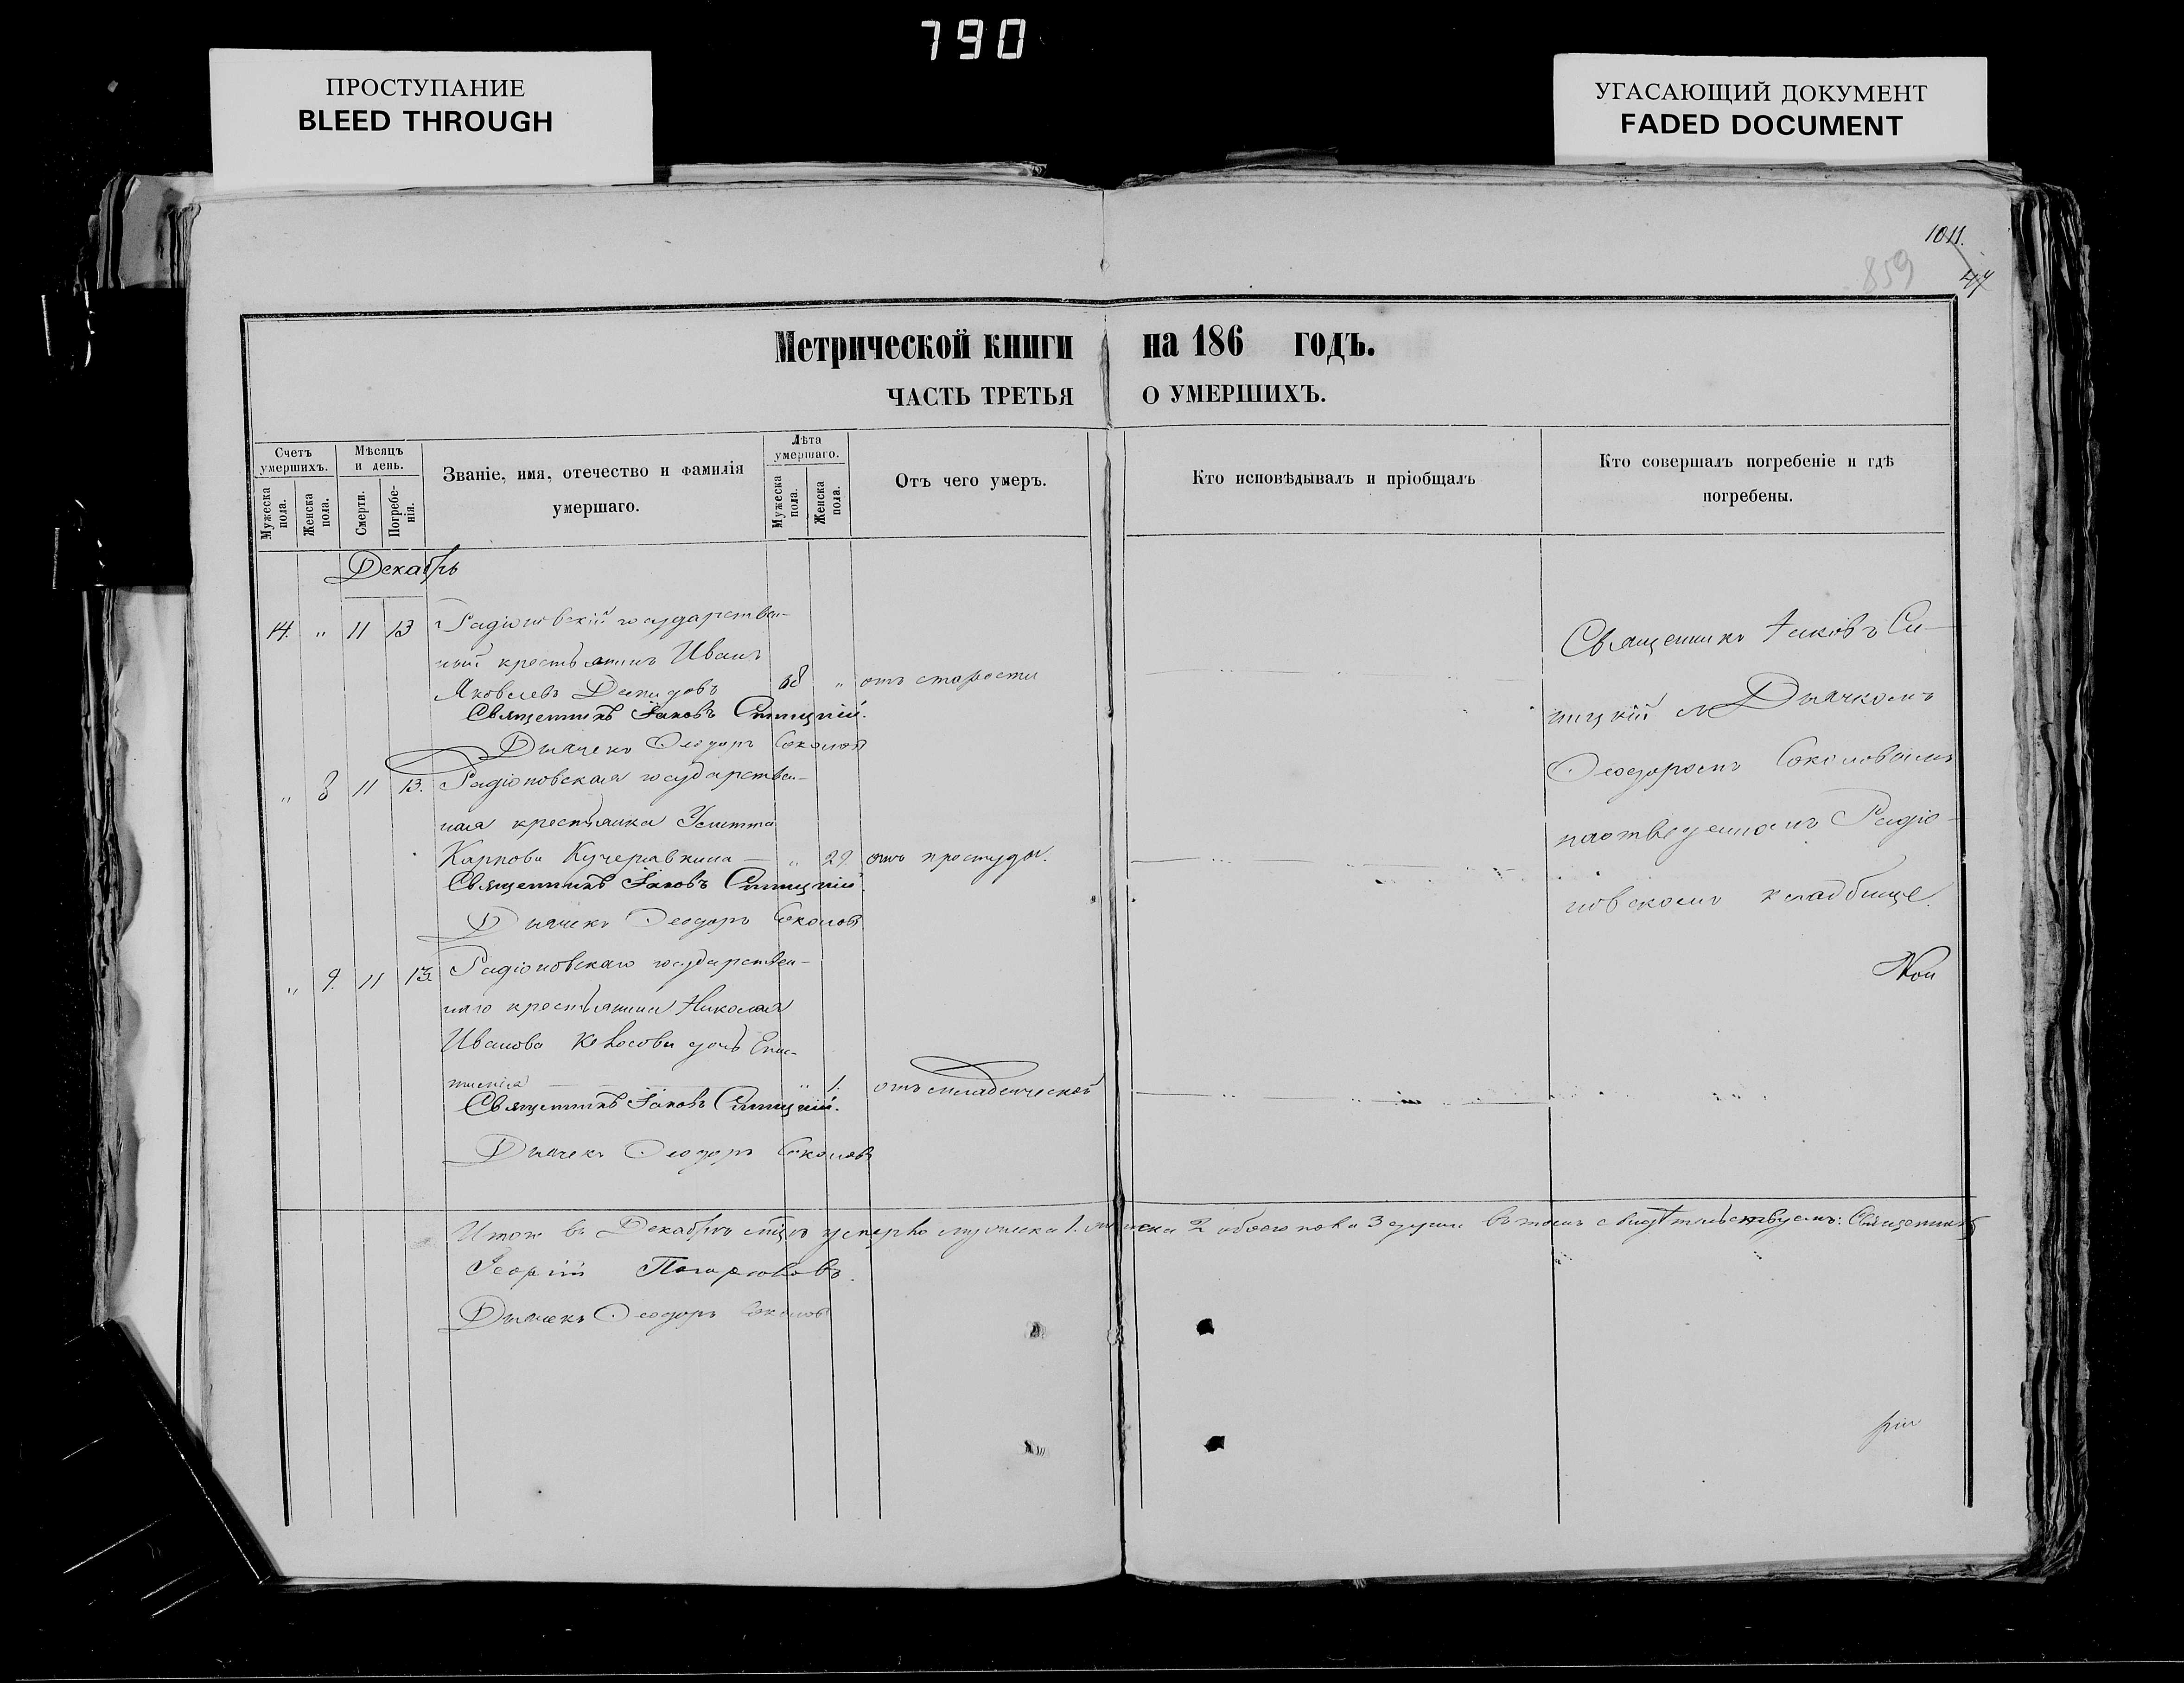 790
ПРОСТУПАНИЕ
BLEED THROUGH
УГАСАЮЩИЙ ДОКУМЕНТ
FADED DOCUMENT
1011.
859
Метрической книги на 186 годъ.
ЧАСТЬ ТРЕТЬЯ О УМЕРШИХЪ.
Счетъ умершихъ.
Мужеска пола.
Женска пола.
Мѣсяцъ и день.
Смерти.
Погребенія.
Званіе, имя, отечество и фамилія
умершаго.
Лѣта умершаго.
Мужеска пола.
Женска пола.
Отъ чего умеръ.
Кто исповѣдывалъ и пріобщалъ
Кто совершалъ погребеніе и гдѣ
погребены.
Декабрь
14. " 11 13 Радіоновскій государствен-
ный крестьянинъ Иванъ
Яковлевъ Демидовъ 68 " отъ старости
Священникъ Іаковъ
Дьячекъ Ѳеодоръ Соколовъ
" 8 11 13. Радіоновская государствен-
ная крестьянка Улитта
Карпова Кучерявкина — " 29. отъ простуды.
Священникъ Іаковъ
Дьячекъ Ѳеодоръ Соколовъ
" 9. 11 13. Радіоновскаго государствен-
наго крестьянина Николая
Иванова дочь
" 1. отъ младенческой
Священникъ Іаковъ
Дьячекъ Ѳеодоръ Соколовъ
Священникъ Іаковъ
съ Дьячкомъ
Ѳеодоромъ Соколовымъ
на отведенномъ Радіо-
новскомъ кладбище.
Итого въ Декабрѣ мцѣ умерло мужеска 1. женска 2 обоего пола 3 души въ томъ свидѣтельствуемъ: Священникъ
Георгій
Дьячекъ Ѳеодоръ Соколовъ